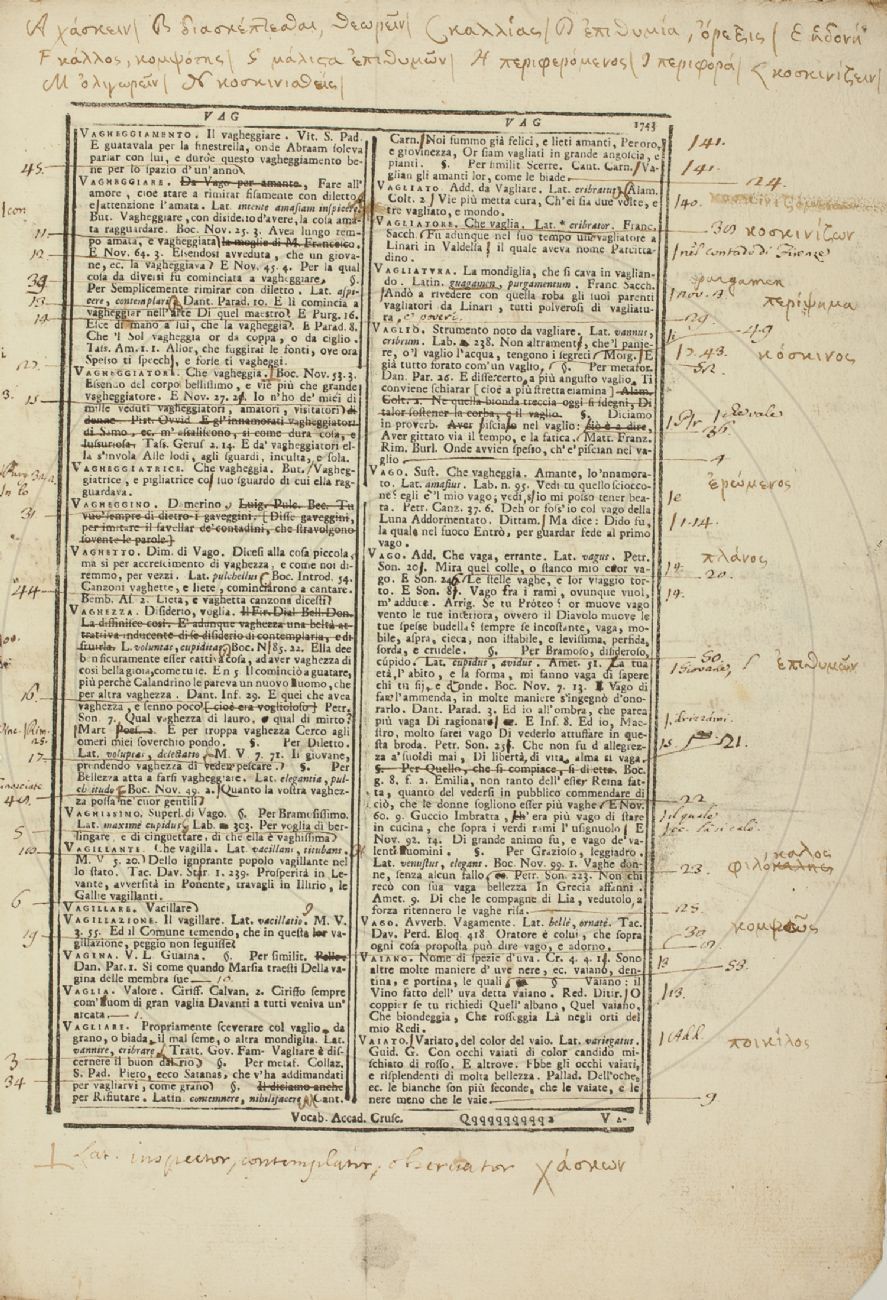 A χάσκειν| B διασκέπτεσθαι, θεωρεῖν| C καλλίας| D ἐπιθυμία, ὄρεξις| E ἡδονή
F κάλλος, κομψότης| G μάλιστα ἐπιθυμῶν| H περιφερόμενος| I περιφορά| L κοσκινίζειν|
M ὀλιγωρεῖν| N κοσκινισθείς|
VAG
VAG 1743
VAGHEGGIAMENTO. Il vagheggiare. Vit. S. Pad.
E guatavala per la finestrella, onde Abraam soleva
parlar con lui, e durοe questo vagheggiamento be-
ne per lo spazio d'un'anno
VAGHEGGIARE. Da Vago per amante. Fare all'
amore, cioè stare a rimirar fisamente con diletto,
e attenzione l'amata. Lat. intente amasiam inspicere.
But. Vagheggiare, con disiderio d'avere, la cosa ama-
ta ragguardare. Boc. Nov. 25. 3. Avea lungo tem-
po amata, e vagheggiata la moglie di M. Francesco.
E Nov. 64. 3. Eisendosi avveduta, che un giova-
ne, ec. la vagheggiava? E Nov. 45. 4. Per la qual
cosa da diversi fu cominciata a vagheggiare. §.
Per Semplicemente rimirar con diletto. Lat. aspi-
cere, contemplari. Dant. Parad. 10. E lì comincia a
vagheggiar nell'arte Di quel maestro. E Purg. 16.
Esce di mano a lui, che la vagheggia. E Parad. 8.
Che 'l Sol vagheggia or da coppa, o da ciglio.
Tass. Am. 1. 1. Alior, che fuggirai le fonti, ove ora
Spesso ti specchj, e forse ti vagheggi.
VAGHEGGIATORE. Che vagheggia. Boc. Nov. 53. 3.
Essendo del corpo bellissimo, e vie più che grande
vagheggiatore. E Nov. 27. 21. Io n'ho de' miei di
mille veduti vagheggiatori, amatori, visitatori di
donne. Pist. Ovvid. E gl'innamorati vagheggiatori
di Samo, ec. m'assaliscono, sì come dura cosa, e
lussuriosa. Tass. Gerus. 2. 14. E da' vagheggiatori el-
la s'invola Alle lodi, agli sguardi, inculta, e sola.
VAGHEGGIATRICE. Che vagheggia. But. Vagheg-
giatrice, e pigliatrice col suo sguardo di cui ella rag-
guardava.
VAGHEGGINO. Damerino. Luig. Pulc. Bec. Tu
vuo' sempre di dietro i gaveggini. [Disse gaveggini,
per imitare il favellar de' contadini, che stravolgono
sovente le parole.]
VAGHETTO. Dim. di Vago. Dicesi alla cosa piccola,
ma sì per accrescimento di vaghezza, e come noi di-
remmo, per vezzi. Lat. pulchellus. Boc. Introd. 54.
Canzoni vaghette, e liete, cominciarono a cantare.
Bemb. As. 2. Lieta, e vaghetta canzona dicesti?
VAGHEZZA. Disiderio, voglia. Il Fir. Dial. Bell. Don.
La diffinisce così. E adunque vaghezza una beltà at-
trattiva inducente di se disiderio di contemplarla, e di
fruirla. L. voluntas, cupiditas. Boc. N. 85. 22. Ella dee
ben sicuramente esser cattiva cosa, ad aver vaghezza di
così bella gioia, come tu se. E n 5. Il cominciò a guatare,
più perchè Calandrino le pareva un nuovo uomo, che
per altra vaghezza. Dant. Inf. 29. E quei che avea
vaghezza, e senno poco [cioè era voglioloso] Petr.
Son. 7. Qual vaghezza di lauro, o qual di mirto?
Mart. E per troppa vaghezza Cerco agli
omeri miei soverchio pondo. §. Per Diletto.
Lat. voluptas, delectatio. M. V. 7. 71. Il giovane,
prendendo vaghezza di veder pescare. §. Per
Bellezza atta a farsi vagheggiare. Lat. elegantia, pul-
chritudo. Boc. Nov. 49. 2. Quanto la vostra vaghez-
za possa ne' cuor gentili
VAGHISSIMO. Superl. di Vago. §. Per Bramosissimo.
Lat. maximè cupidus. Lab. 303. Per voglia di ber-
lingare, e di cinguettare, di che ella è vaghissima
VAGILLANTE. Che vagilla. Lat. vacillans, titubans.
M. V. 5. 20. Dello ignorante popolo vagillante nel
lo stato. Tac. Dav. Stor. 1. 239. Prosperità in Le-
vante, avversità in Ponente, travagli in Illirio, le
Gallie vagillanti.
VAGILLARE. Vacillare
VAGILLAZIONE. Il vagillare. Lat. vacillatio. M. V.
3. 55. Ed il Comune temendo, che in questa lor va-
gillazione, peggio non seguisse
VAGINA. V. L. Guaina. §. Per similit.
Dan. Par. 1. Sì come quando Marsia traesti Della va-
gina delle membra sue
VAGLIA. Valore. Ciriff. Calvan. 2. Ciriffo sempre
com'uom di gran vaglia Davanti a tutti veniva un'
arcata.
VAGLIARE. Propriamente sceverare col vaglio, da
grano, o biada, il mal seme, o altra mondiglia. Lat.
vannere, cribrare. Tratt. Gov. Fam. Vagliare è dis-
cernere il buon dal rio §. Per metaf. Collaz.
S. Pad. Piero, ecco Satanas, che v'ha addimandati
per vagliarvi, come grano §. Il diciamo anche
per Rifiutare. Latin. contemnere, nihilifacere. Cant.
Carn. Noi summo già felici, e lieti amanti, Peroro,
e giovinezza, Or siam vagliati in grande angoscia, e
pianti. §. Per similit. Scerre. Cant. Carn. Va-
glian gli amanti lor, come le biade
VAGLIATO. Add. da Vagliare. Lat. cribratus. Alam.
Colt. 2. Vie più metta cura, Ch'ei sia due volte, e
tre vagliato, e mondo.
VAGLIATORE. Che vaglia. Lat. * cribrator. Franc.
Sacch. Fu adunque nel suo tempo uno vagliatore a
Linari in Valdelsa il quale aveva nome Parcitta-
dino.
VAGLIATURA. La mondiglia, che si cava in vaglian-
do. Latin. guagamen, purgamentum. Franc. Sacch.
Andò a rivedere con quella roba gli suoi parenti
vagliatori da Linari, tutti polverosi di vagliatu-
ra, e poveri.
VAGLIO. Strumento noto da vagliare. Lat. vannus,
cribrum. Lab. 238. Non altramenti, che'l panie-
re, o'l vaglio l'acqua, tengono i segreti. Morg. E
già tutto forato com'un vaglio. §. Per metafor.
Dan. Par. 26. E disse: certo, a più angusto vaglio, Ti
conviene schiarar [cioè a più stretta esamina] Alam.
Colt. 2. Ne quella bionda treccia oggi si sdegni, Di
talor sostener la corba, e il vaglio. §. Diciamo
in proverb. Aver pisciato nel vaglio: ciò è a dire,
Aver gittato via il tempo, e la fatica. Matt. Franz.
Rim. Burl. Onde avvien spesso, ch'e' piscian nel va-
glio
VAGO. Sust. Che vagheggia. Amante, lo'nnamora-
to. Lat. amasius. Lab. n. 95. Vedi tu quello sciocco-
ne? egli è 'l mio vago; vedi, s'io mi posso tener bea-
ta. Petr. Canz. 37. 6. Deh or foss'io col vago della
Luna Addormentato. Dittam. Ma dice: Dido fu,
la quale nel fuoco Entrò, per guardar fede al primo
vago.
VAGO. Add. Che vaga, errante. Lat. vagus. Petr.
Son. 20. Mira quel colle, o stanco mio cuor va-
go. E Son. 246. Le stelle vaghe, e lor viaggio tor-
to. E Son. 8. Vago fra i rami, ovunque vuol,
m'adduce. Arrig. Se tu Pròteo or muove vago
vento le tue interiora, ovvero il Diavolo muove le
tue spesse budella? sempre se incostante, vaga, mo-
bile, aspra, cieca, non istabile, e levissima, perfida,
sorda, e crudele. §. Per Bramoso, disideroso,
cupido. Lat. cupidus, avidus. Amet. 51. La tua
età, l'abito, e la forma, mi fanno vaga di sapere
chi tu sij, e d'onde. Boc. Nov. 7. 13. Vago di
farsi l'ammenda, in molte maniere s'ingegnò d'ono-
rarlo. Dant. Parad. 3. Ed io all'ombra, che parea
più vaga Di ragionar. E Inf. 8. Ed io, Mae-
stro, molto sarei vago Di vederlo attuffare in que-
sta broda. Petr. Son. 25. Che non fu d'allegrez-
za a' suoi dì mai, Di libertà, di vita, alma sì vaga.
§. Per Quello, che si compiace, si diletta. Boc.
g. 8. f. 2. Emilia, non tanto dell'esser Reina fat-
ta, quanto del vedersi in pubblico commendare di
ciò, che le donne sogliono esser più vaghe. E Nov.
60. 9. Guccio Imbratta, ch'era più vago di stare
in cucina, che sopra i verdi rami l'usignuolo. E
Nov. 92. 14. Di grande animo fu, e vago de' va-
lenti uomini §. Per Grazioso, leggiadro.
Lat. venustus, elegans. Boc. Nov. 99. 1. Vaghe don-
ne, senza alcun fallo. Petr. Son. 223. Non chi
recò con sua vaga bellezza In Grecia affanni.
Amet. 9. Di che le compagne di Lia, vedutolo, a
forza ritennero le vaghe risa.
VAGO. Avverb. Vagamente. Lat. bellè, ornatè. Tac.
Dav. Perd. Eloq. 418. Oratore è colui, che sopra
ogni cosa proposta può dire vago, e adorno.
VAIANO. Nome di spezie d'uva. Cr. 4. 4. 14. Sono
altre molte maniere d'uve nere, ec. vaiano, den-
tina, e portina, le quali § Vaiano: il
Vino fatto dell'uva detta vaiano. Red. Ditir. O
coppier se tu richiedi Quell'albano, Quel vaiano,
Che biondeggia, Che rosseggia Là negli orti del
mio Redi.
VAIATO. Variato, del color del vaio. Lat. variegatus.
Guid. G. Con occhi vaiati di color candido mi-
schiato di rosso. E altrove. Ebbe gli occhi vaiati,
e risplendenti di molta bellezza. Pallad. Dell'oche,
ec. le bianche son più feconde, che le vaiate, e le
nere meno che le vaie.
Vocab. Accad. Crusc. Qqqqqqqqqq 2 V a-
Lat. inspector, contemplator, observator χάσκων
45.
11
12
39
13
14
15
31
44
16
17
5
6
19
3
34
141.
141.
24.
140.
30 κοσκινίζων
nel contado di Firenze
purgamen
περίψημα
29
49
κόσκινος
52
4
ἐρώμενος
1.14.
πλάνος
20.
50. ἐπιθυμῶν
21.
22
23.
28.
30 κομψῶς
53.
13.
Add. ποικίλος
9